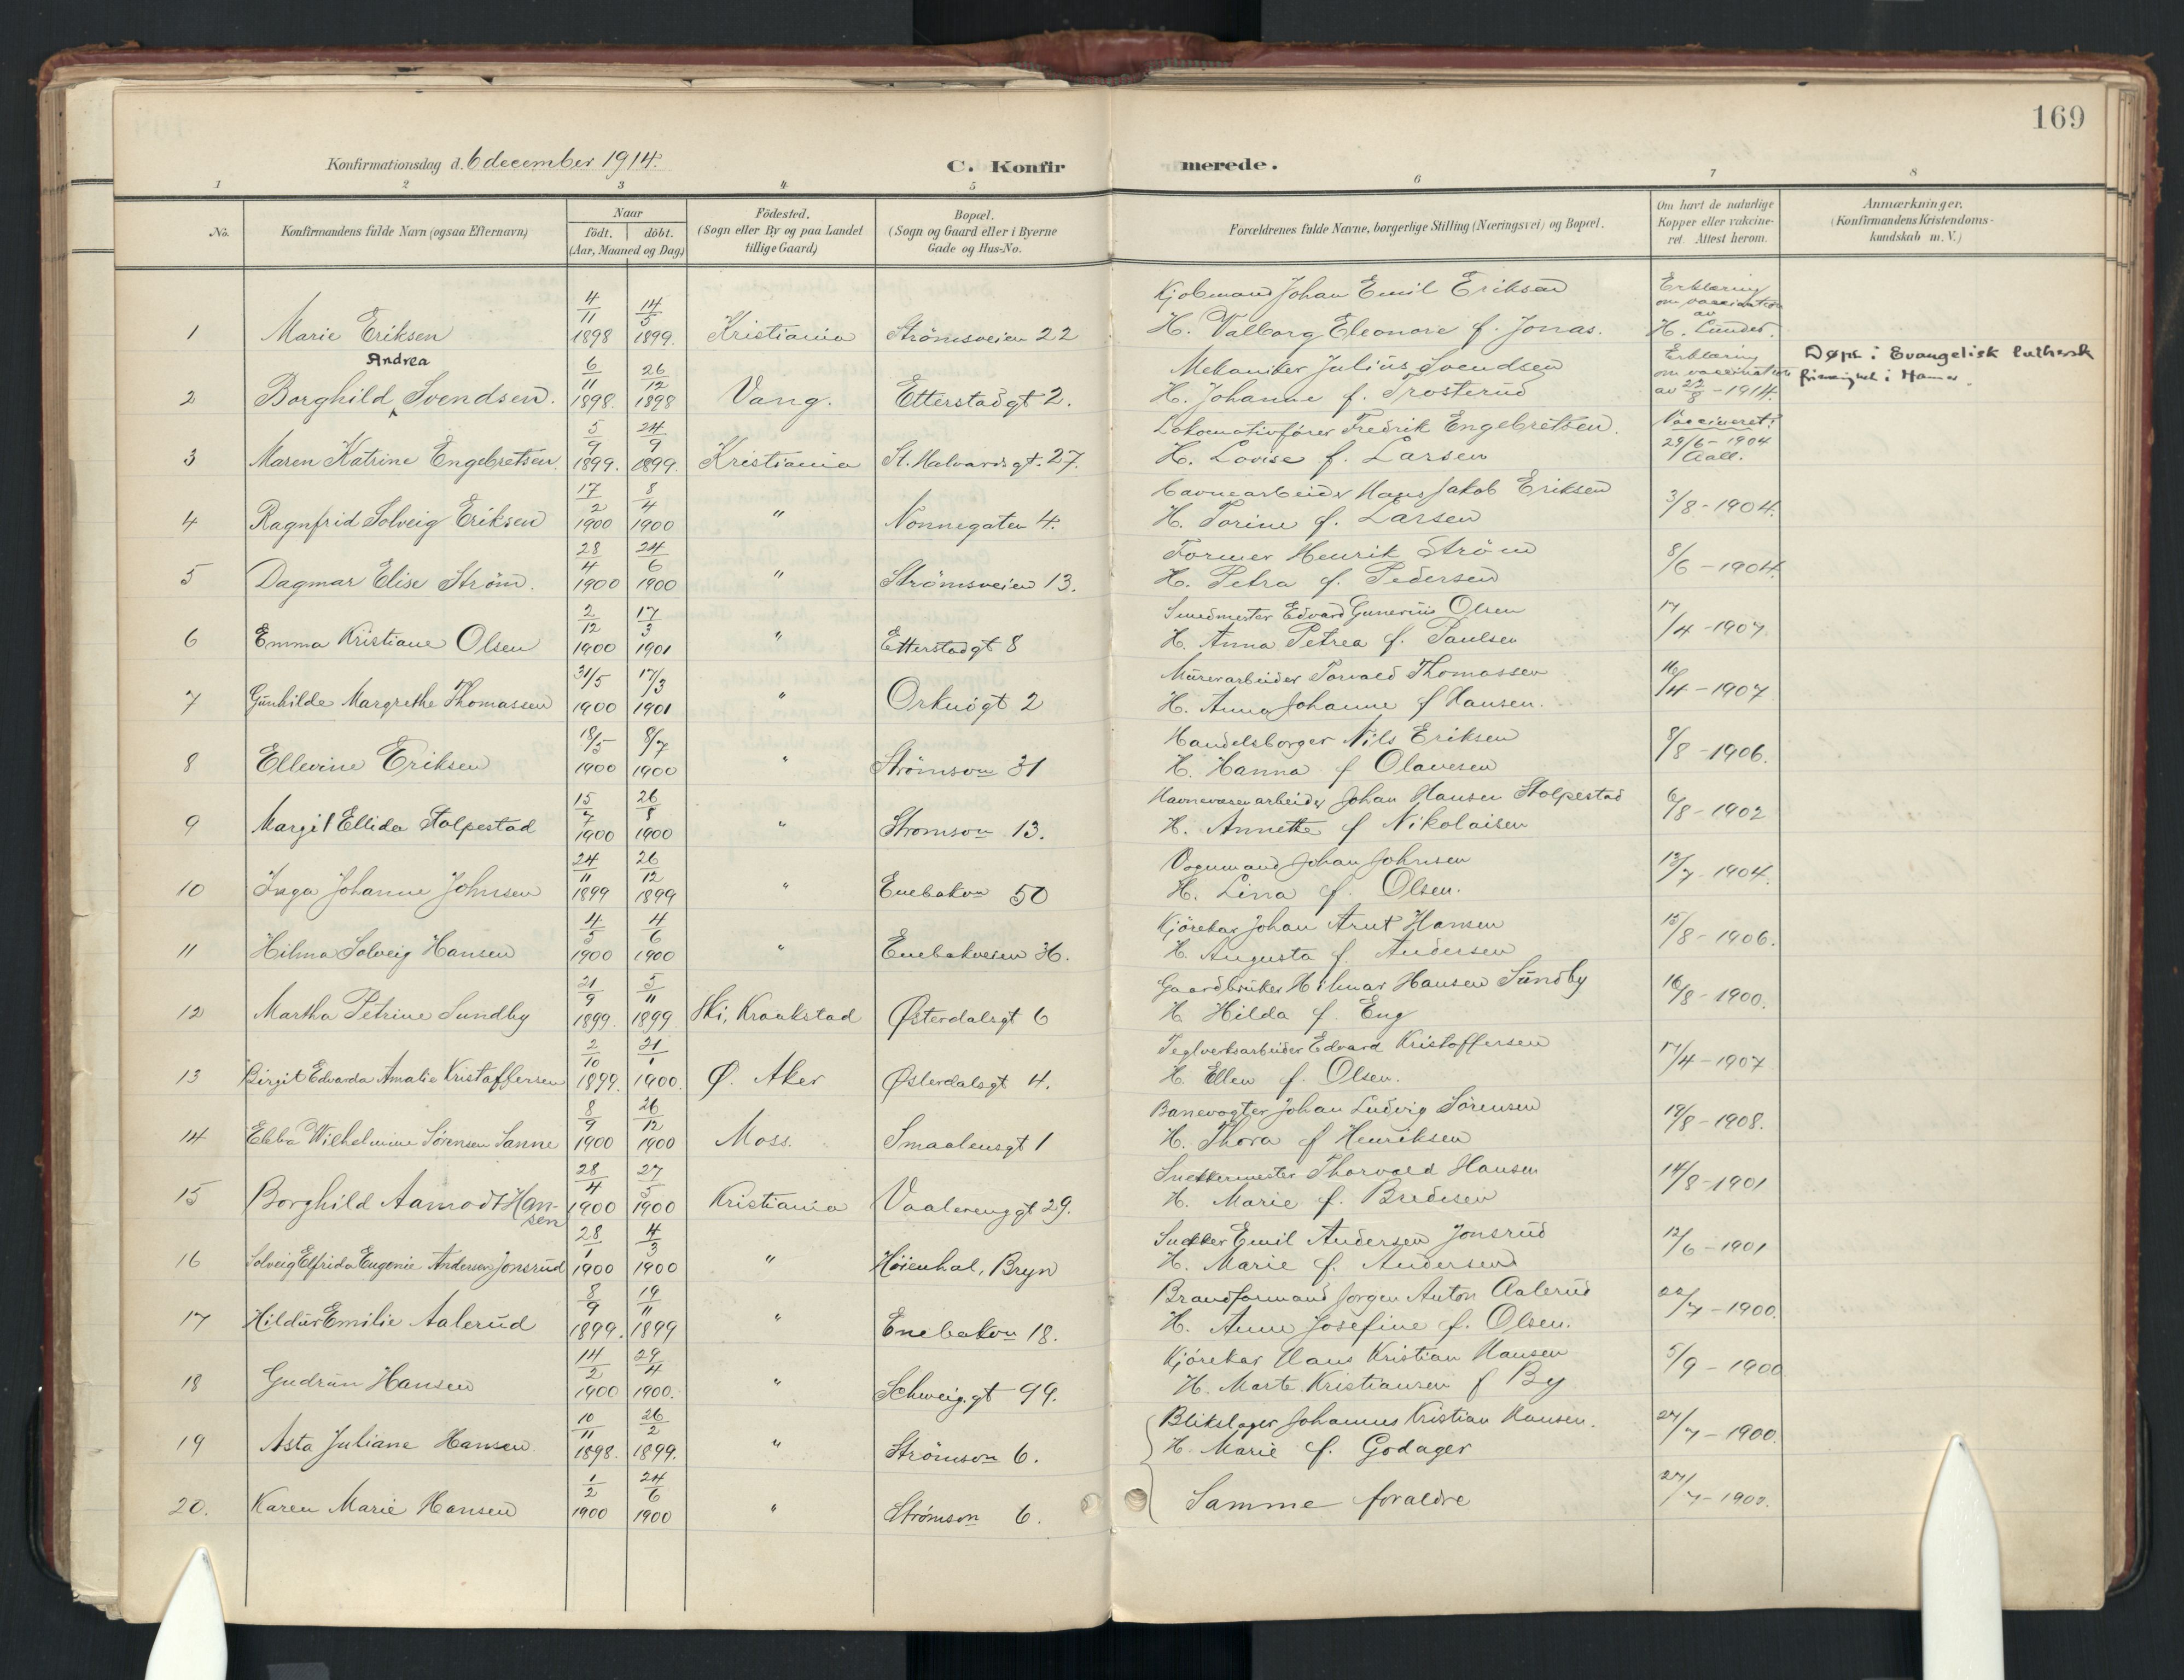 169
Konfirmationsdag d. 6 december 1914.
C. Konfirmerede.
1 2 3 4 5 6 7 8
No.
Konfirmandens fulde Navn (ogsaa Efternavn)
Naar
født. døbt.
(Aar, Maaned og Dag)
Fødested.
(Sogn eller By og paa Landet
tillige Gaard)
Bopæl.
(Sogn og Gaard eller i Byerne
Gade og Hus-No.
Forældrenes fulde Navne, borgerlige Stilling (Næringsvei) og Bopæl.
Om havt de naturlige
Kopper eller vakcine-
ret. Attest herom.
Anmærkninger.
(Konfirmandens Kristendoms-
kundskab m. V.)
1 Marie Eriksen 4/11 1898 14/5 1899. Kristiania Strømsveien 22 Kjøbmand Johan Emil Eriksen Erklæring om vaccination av
H. Valborg Eleonore f. Jonas. H. Lunder.
2 Borghild Andrea Svendsen. 6/11 1898. 26/12 1898 Vang. Etterstadgt 2. Mekaniker Julius Svendsen Erklæring om vaccination Døpt i Evangelisk luthersk
H. Johanne f. Trosterud av 22/8 - 1914. frimenighet i Hamar.
3 Maren Katrine Engebretsen. 5/9 1899. 24/9 1899. Kristiania St. Halvardsgt. 27. Lokomotivfører Fredrik Engebretsen. Vaccineret:
H. Lovise f. Larsen 29/6 - 1904 Aall.
4 Ragnfrid Solveig Eriksen 17/2 1900 8/4 1900 " Nonnegaten 4. Havnearbeider Hans Jakob Eriksen 3/8 - 1904.
H. Torine f. Larsen
5 Dagmar Elise Strøm. 28/4 1900 24/6 1900 " Strømsveien 13. Former Henrik Strøm 8/6 - 1904.
H. Petra f. Pedersen
6 Emma Kristiane Olsen 2/12 1900 17/3 1901 " Etterstadgt 8 Smedmester Edvard Gunerius Olsen 17/4 - 1907
H. Anna Petrea f. Paulsen
7 Gunhilde Margrethe Thomassen 31/5 1900 17/3 1901 " Orknøgt 2 Murerarbeider Torvald Thomassen 16/4 - 1907
H. Anna Johanne f Hansen.
8 Ellevine Eriksen 18/5 1900 8/7 1900 " Strømsvn 31 Handelsborger Nils Eriksen 8/8 - 1906.
H. Hanna f Olavesen
9 Margit Ellida Stolpestad 15/7 1900 26/8 1900 " Strømsvn 13. Havnevæsenarbeider Johan Hansen Stolpestad 6/8 - 1902
H. Annette f Nikolaisen
10 Inga Johanne Johnsen 24/11 1899 26/12 1899 " Enebakvn 50 Vognmand Johan Johnsen 13/7 - 1904.
H. Lina f. Olsen.
11 Hilma Solveig Hansen 4/5 1900 4/6 1900 " Enebakveien 36. Kjørekar Johan Arnt Hansen 15/8 - 1906.
H. Augusta f. Andersen
12 Martha Petrine Sundby 21/9 1899. 5/11 1899 Ski, Kraakstad Østerdalsgt 6 Gaardbruker Hilmar Hansen Sundby 16/8 - 1900.
H Hilda f. Eng
13 Birgit Edvarda Amalie Kristoffersen 2/10 1899. 21/1 1900. Ø. Aker Østerdalsgt 4. Teglverksarbeider Edvard Kristoffersen 17/4 - 1907
H. Ellen f. Olsen.
14 Ebba Wilhelmine Sørensen Sanne 8/9 1900 26/12 1900 Moss. Smaalensgt 1 Banevogter Johan Ludvig Sørensen 19/8 - 1908.
H. Thora f Henriksen
15 Borghild Aamodt Hansen 28/4 1900 27/5 1900 Kristiania Vaalerenggt 29. Snekkermester Thorvald Hansen 14/8 - 1901
H. Marie f. Bredesen
16 Solveig Elfrida Eugenie Andersen Jonsrud 28/1 1900 4/3 1900 " Høienhal, Bryn Snekker Emil Andersen Jonsrud 12/6 - 1901
H. Marie f. Andersen
17 Hildur Emilie Aalerud 8/9 1899. 19/11 1899 " Enebakvn 18. Brandformand Jørgen Anton Aalerud 22/7 - 1900.
H. Anne Josefine f. Olsen.
18 Gudrun Hansen 14/2 1900 29/4 1900. " Schweig.gt 99. Kjørekar Hans Kristian Hansen 5/9 - 1900
H. Marte Kristiansen f By
19 Asta Juliane Hansen 10/11 1898. 26/2 1899. " Strømsvn 6. Blikslager Johannes Kristian Hansen. 27/7 - 1900.
H. Marie f. Godager
20. Karen Marie Hansen 1/2 1900 24/6 1900 " Strømsvn 6. Samme forældre 27/7 - 1900.